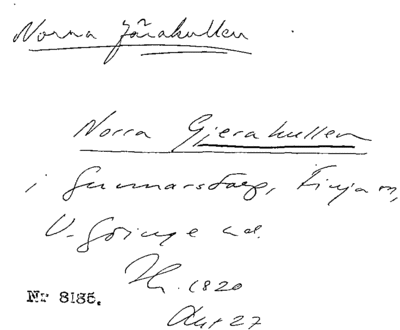 Norra Järakullen
Norra Gjerakullen
i Gunnarstorp, Finja sn,
V. Göinge hd.
1820
Akt 27
Nr 8185.